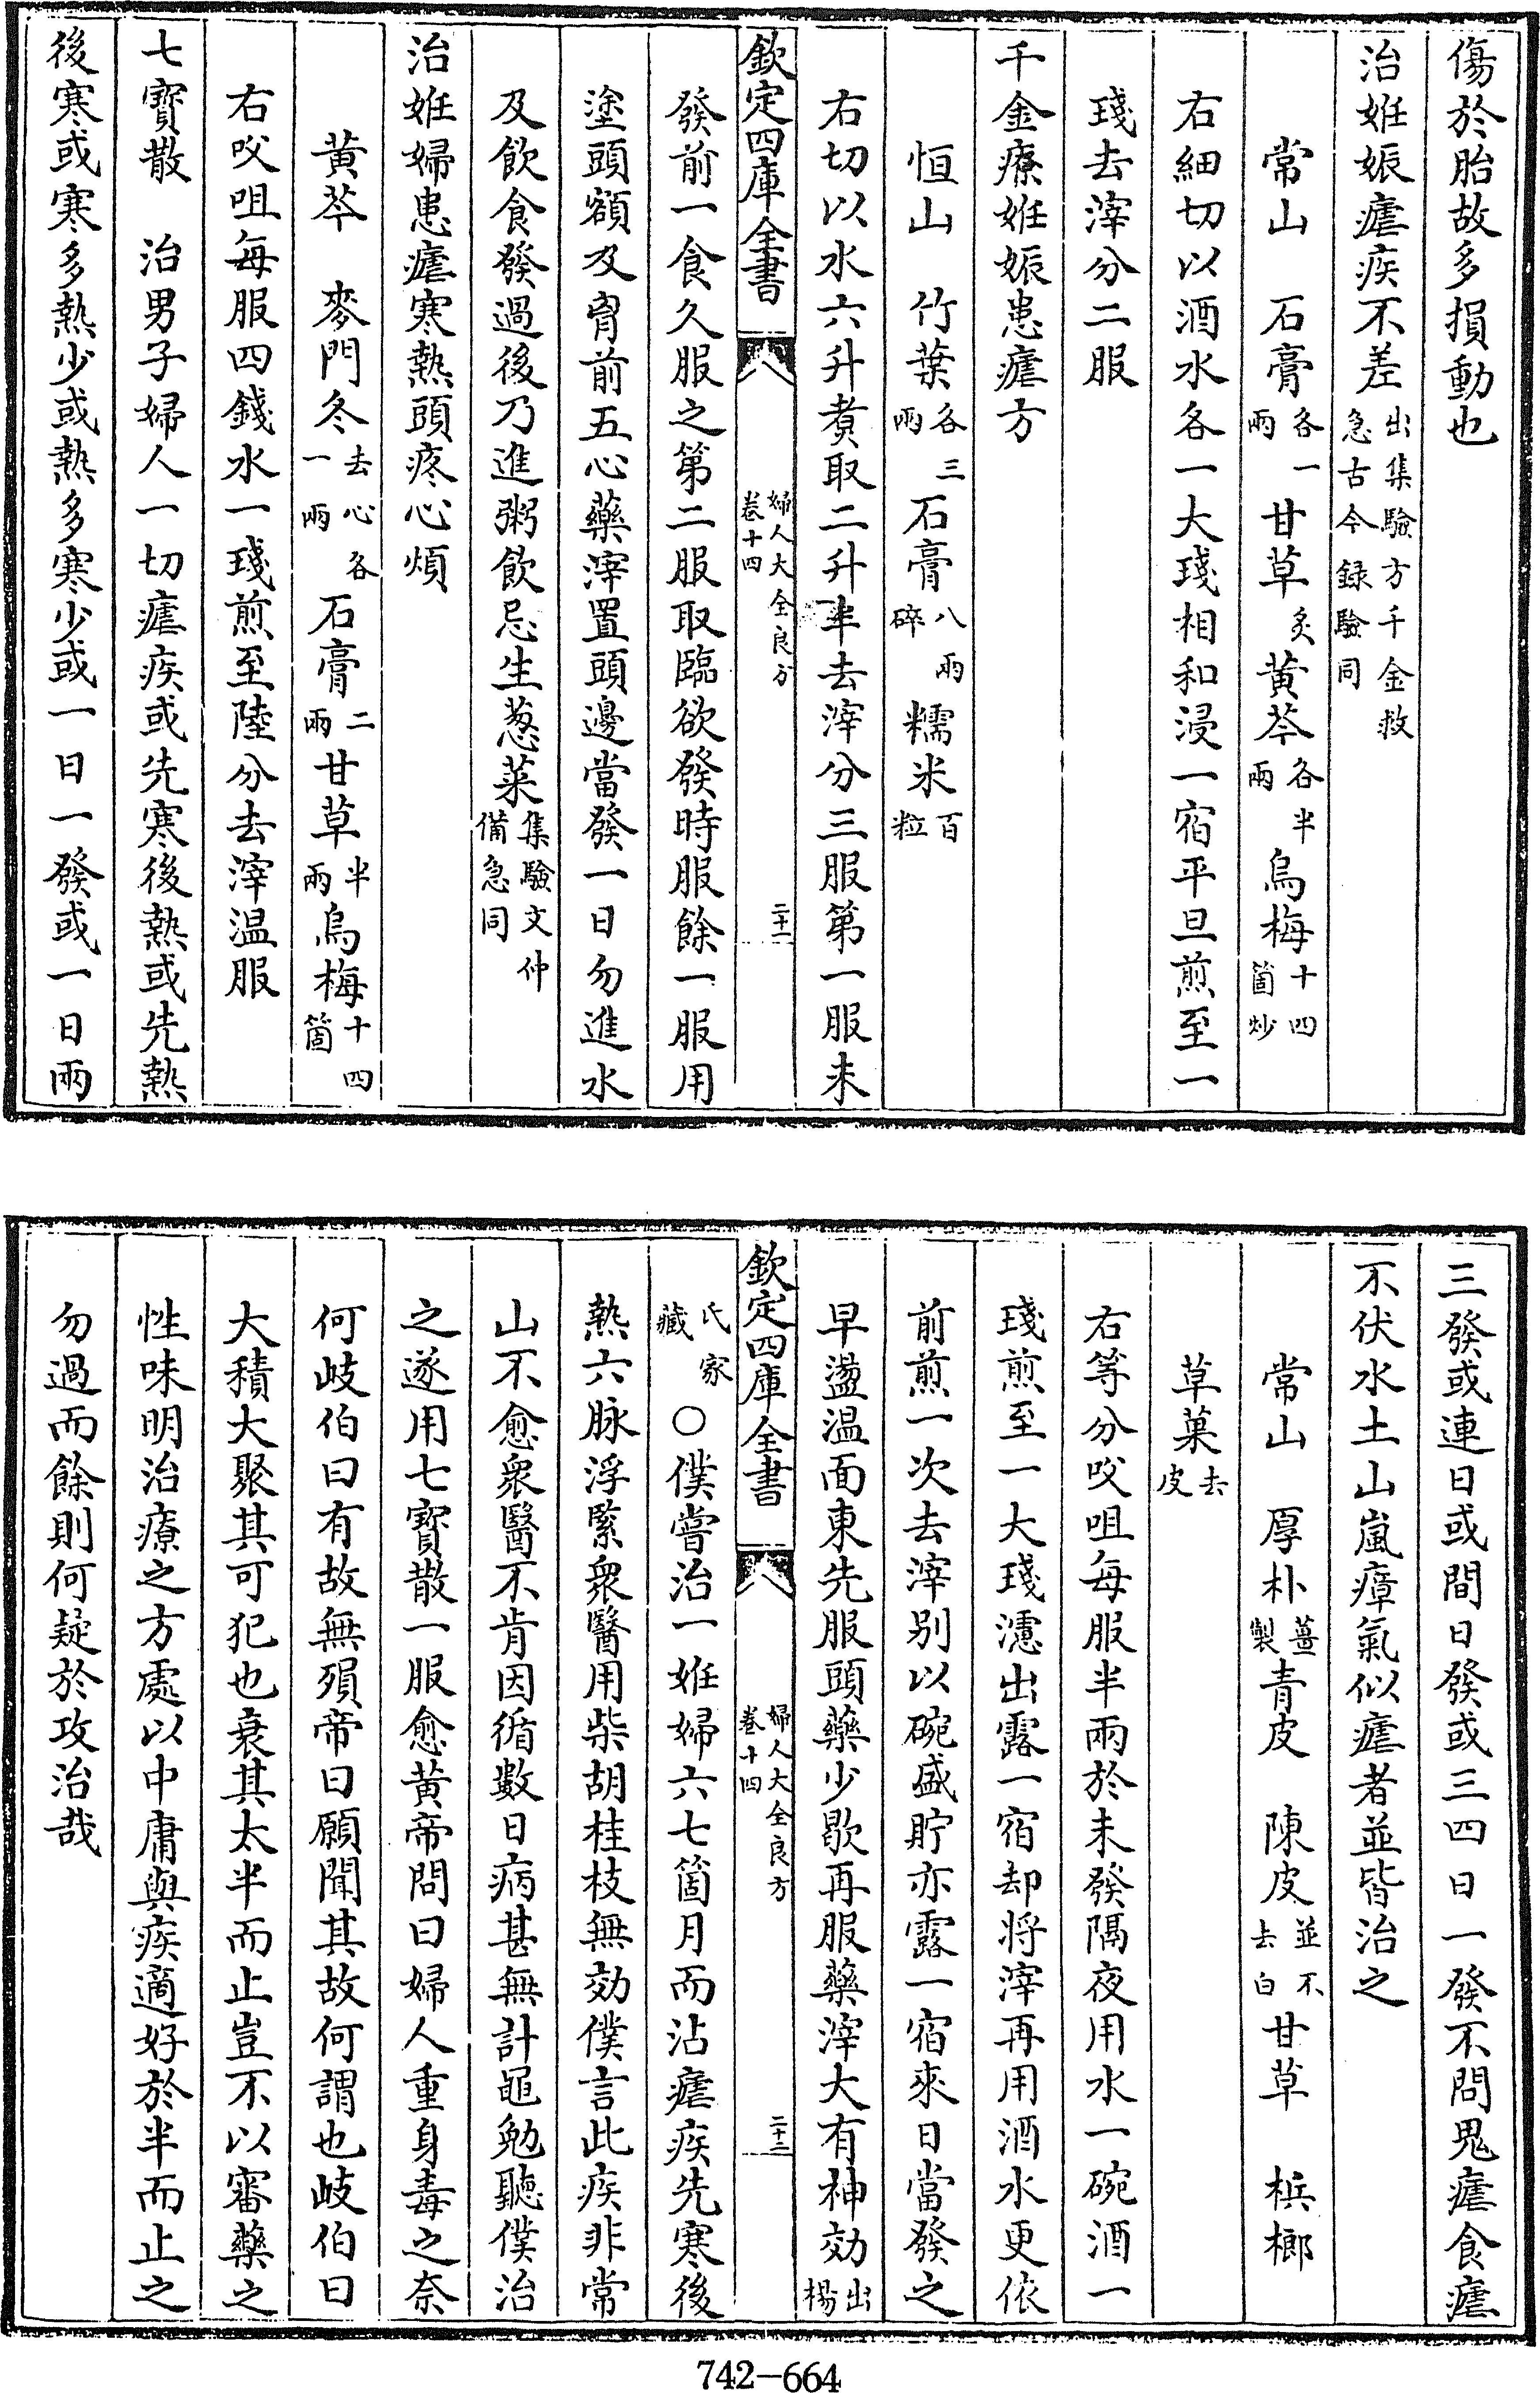 傷於胎故多損動也
治妊娠瘧疾不差出集驗方千金救急古今録驗同
常山　石膏各一兩甘草炙黄芩各半兩烏梅十四箇炒
右細切以酒水各一大琖相和浸一宿平旦煎至一
琖去滓分二服
千金療妊娠患瘧方
恒山　竹葉各三兩石膏八兩碎糯米百粒
右切以水六升煑取二升半去滓分三服第一服未
欽定四庫全書　婦人大全良方卷十四　二十一
發前一食久服之第二服取臨欲發時服餘一服用
塗頭額及胷前五心藥滓置頭邊當發一日勿進水
及飲食發過後乃進粥飲忌生葱菜集驗文仲備急同
治妊婦患瘧寒熱頭疼心煩
黄芩　麥門冬去心各一兩石膏二兩甘草半兩烏梅十四箇
右㕮咀每服四錢水一琖煎至陸分去滓温服
七寳散　治男子婦人一切瘧疾或先寒後熱或先熱
後寒或寒多熱少或熱多寒少或一日一發或一日兩
三發或連日或間日發或三四日一發不問鬼瘧食瘧
不伏水土山嵐瘴氣似瘧者並皆治之
常山　厚朴薑製青皮　陳皮並不去白甘草　梹榔
草菓去皮
右等分㕮咀每服半兩於未發隔夜用水一碗酒一
琖煎至一大琖濾出露一宿却將滓再用酒水更依
前煎一次去滓别以碗盛貯亦露一宿來日當發之
早盪温面東先服頭藥少歇再服藥滓大有神効出楊
欽定四庫全書　婦人大全良方卷十四　二十二
氏家藏　○僕嘗治一妊婦六七箇月而沾瘧疾先寒後
熱六脉浮緊衆醫用柴胡桂枝無効僕言此疾非常
山不愈衆醫不肯因循數日病甚無計黽勉聽僕治
之遂用七寳散一服愈黄帝問曰婦人重身毒之奈
何岐伯曰有故無殞帝曰願聞其故何謂也岐伯曰
大積大聚其可犯也衰其太半而止豈不以審藥之
性味明治療之方處以中庸與疾適好於半而止之
勿過而餘則何疑於攻治哉
742-664